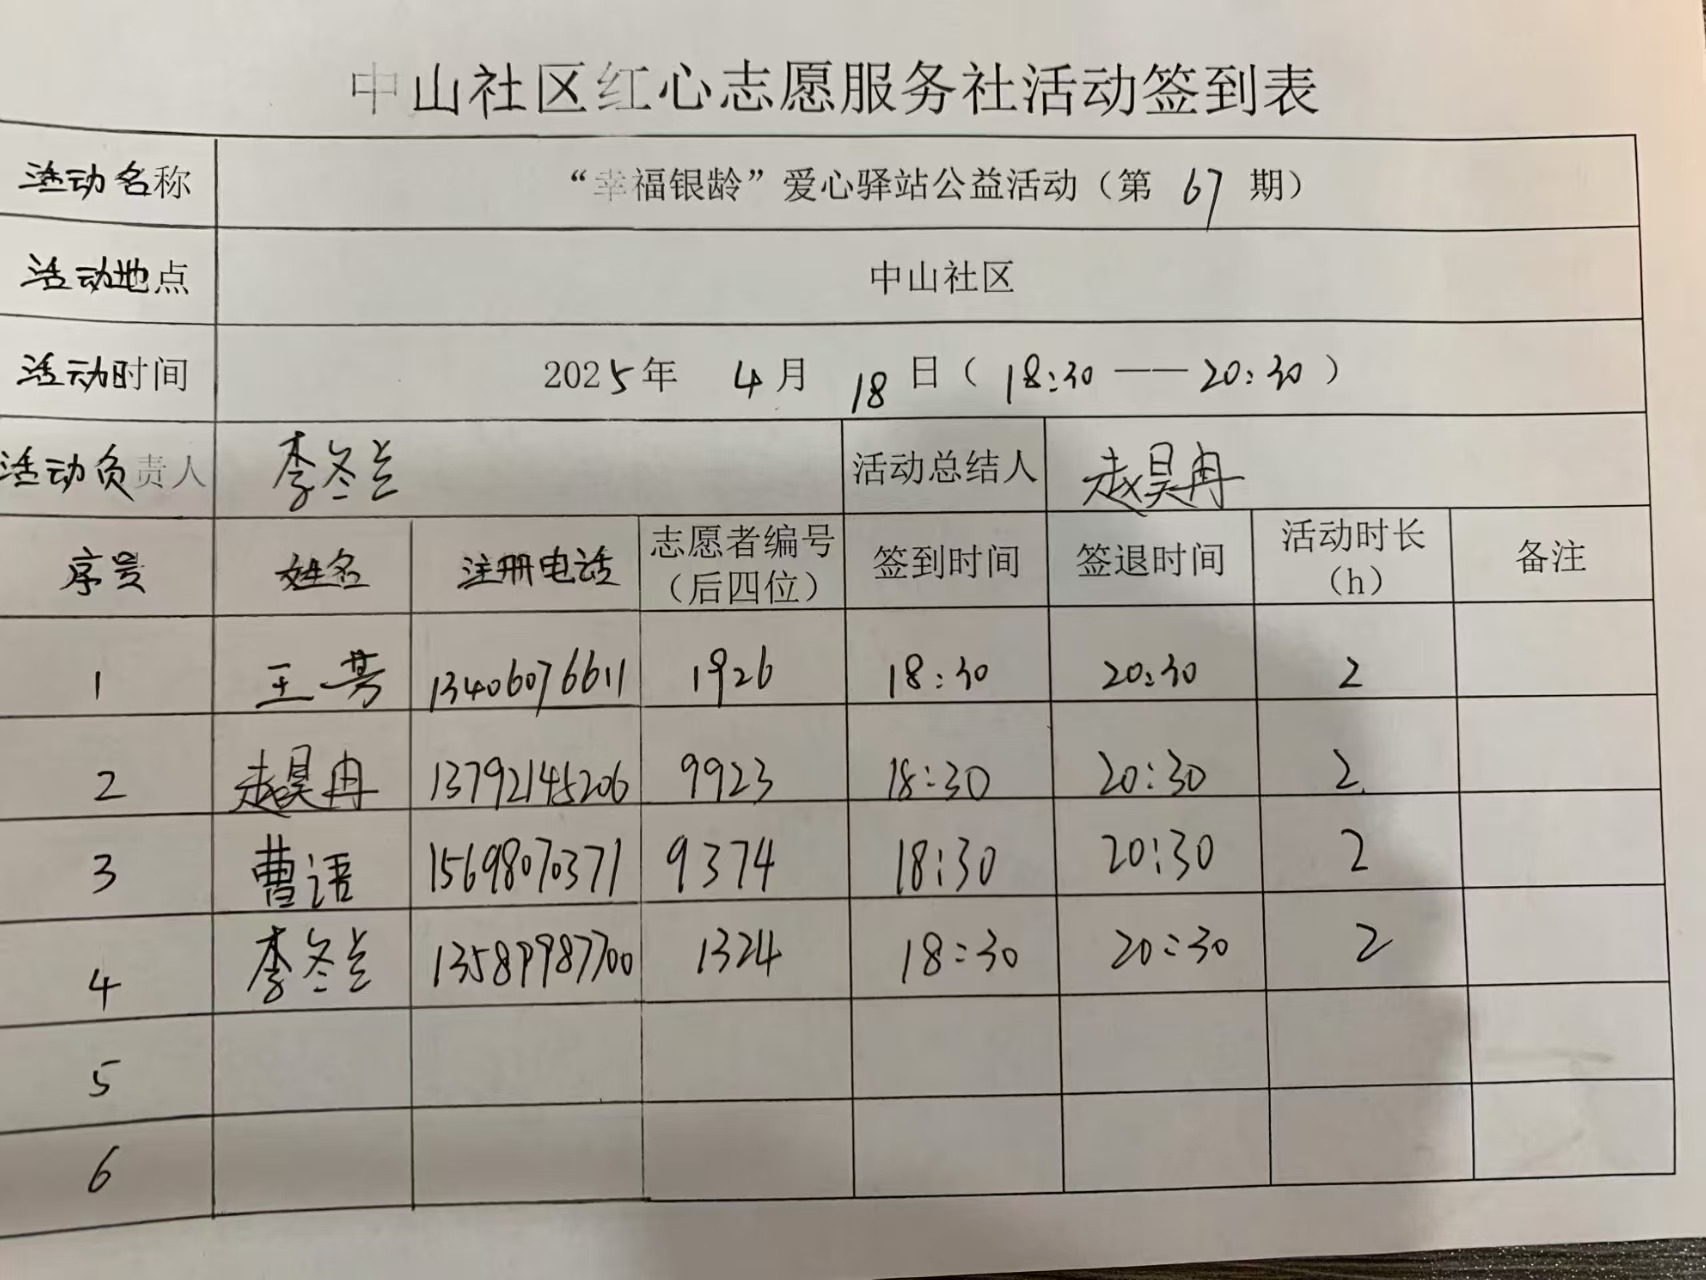 中山社区红心志愿服务社活动签到表
活动名称 “幸福银龄”爱心驿站公益活动（第 67 期）
活动地点 中山社区
活动时间 2025年 4月 18日（18:30——20:30）
活动负责人 李冬兰 活动总结人 赵昊冉
序号 姓名 注册电话 志愿者编号（后四位） 签到时间 签退时间 活动时长（h） 备注
1 王芳 13406076611 1926 18:30 20:30 2
2 赵昊冉 13792145206 9923 18:30 20:30 2
3 曹语 15698070371 9374 18:30 20:30 2
4 李冬兰 13589987700 1324 18:30 20:30 2
5
6